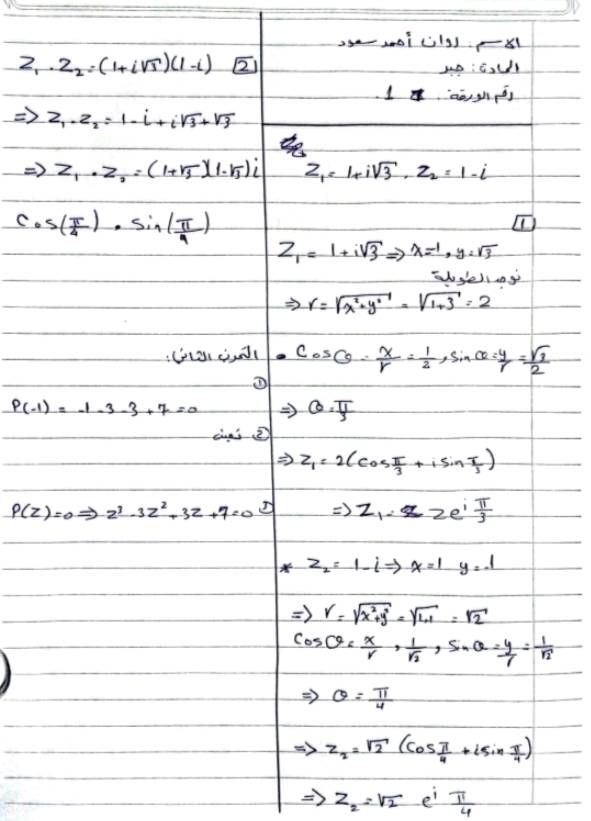 الاسم: روان أحمد سعود
المادة: جبر
رقم الورقة: 1.
Z₁ = 1+i√3 , Z₂ = 1-i
[1]
Z₁ = 1+i√3 => x=1, y=√3
نوجد الطويلة
=> r = √x²+y² = √1+3 = 2
• cosθ = x/r = 1/2, sinθ = y/r = √3/2
=> θ = π/3
=> Z₁ = 2(cos π/3 + i sin π/3)
=> Z₁ = 2e^i π/3
* Z₂ = 1-i => x=1 y=-1
=> r = √x²+y² = √1+1 = √2
cosθ = x/r , 1/√2 , sinθ = y/r = 1/√2
=> θ = π/4
=> Z₂ = √2 (cos π/4 + i sin π/4)
=> Z₂ = √2 e^i π/4
Z₁ . Z₂ = (1+i√3)(1-i) [2]
=> Z₁ . Z₂ = 1-i+i√3+√3
=> Z₁ . Z₂ = (1+√3)(1-√3)i
cos(π/4) . sin(π/4)
التمرين الثاني:
①
P(-1) = -1-3-3+7=0
② نعينه
P(Z)=0 => Z³-3Z²+3Z+7=0 ①